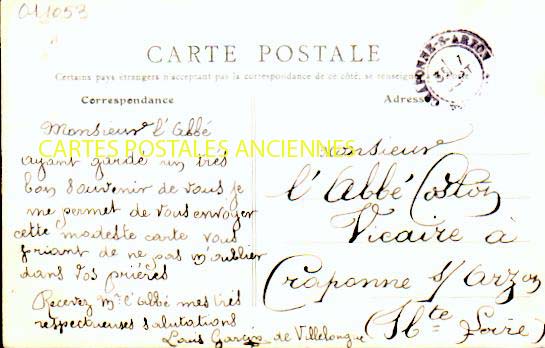 011053
CARTE POSTALE
Certains pays étrangers n'acceptant pas la correspondance de ce côté, se renseigner
Correspondance
Adresse
CRAPONNE-S-ARZON
CARTES POSTALES ANCIENNES
Monsieur l'Abbé
ayant gardé un très
bon souvenir de vous je
me permet de vous envoyer
cette modeste carte vous
priant de ne pas m'oublier
dans vos prières
Recevez Mr l'Abbé mes très
respectueuses salutations
Louis Garcin de Villelongue
Monsieur
l'Abbé Coston
Vicaire à
Craponne s/ Arzon
(Hte Loire)